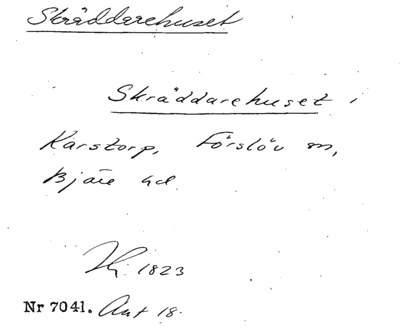 Skräddarehuset
Skräddarehuset i
Karstorp, Förslöv sn,
Bjäre hd
Hj. 1823
Nr 7041. Ant 18.